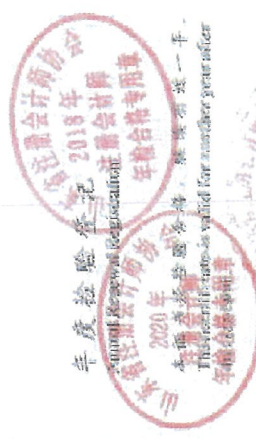 年度检验登记
Annual Renewal Registration
本证书经检验合格,继续有效一年。
This certificate is valid for another year after
省注册会计师协会
2018年
注册会计师
年检合格专用章
省注册会计师协
2020年
注册会计师
年检合格专用章